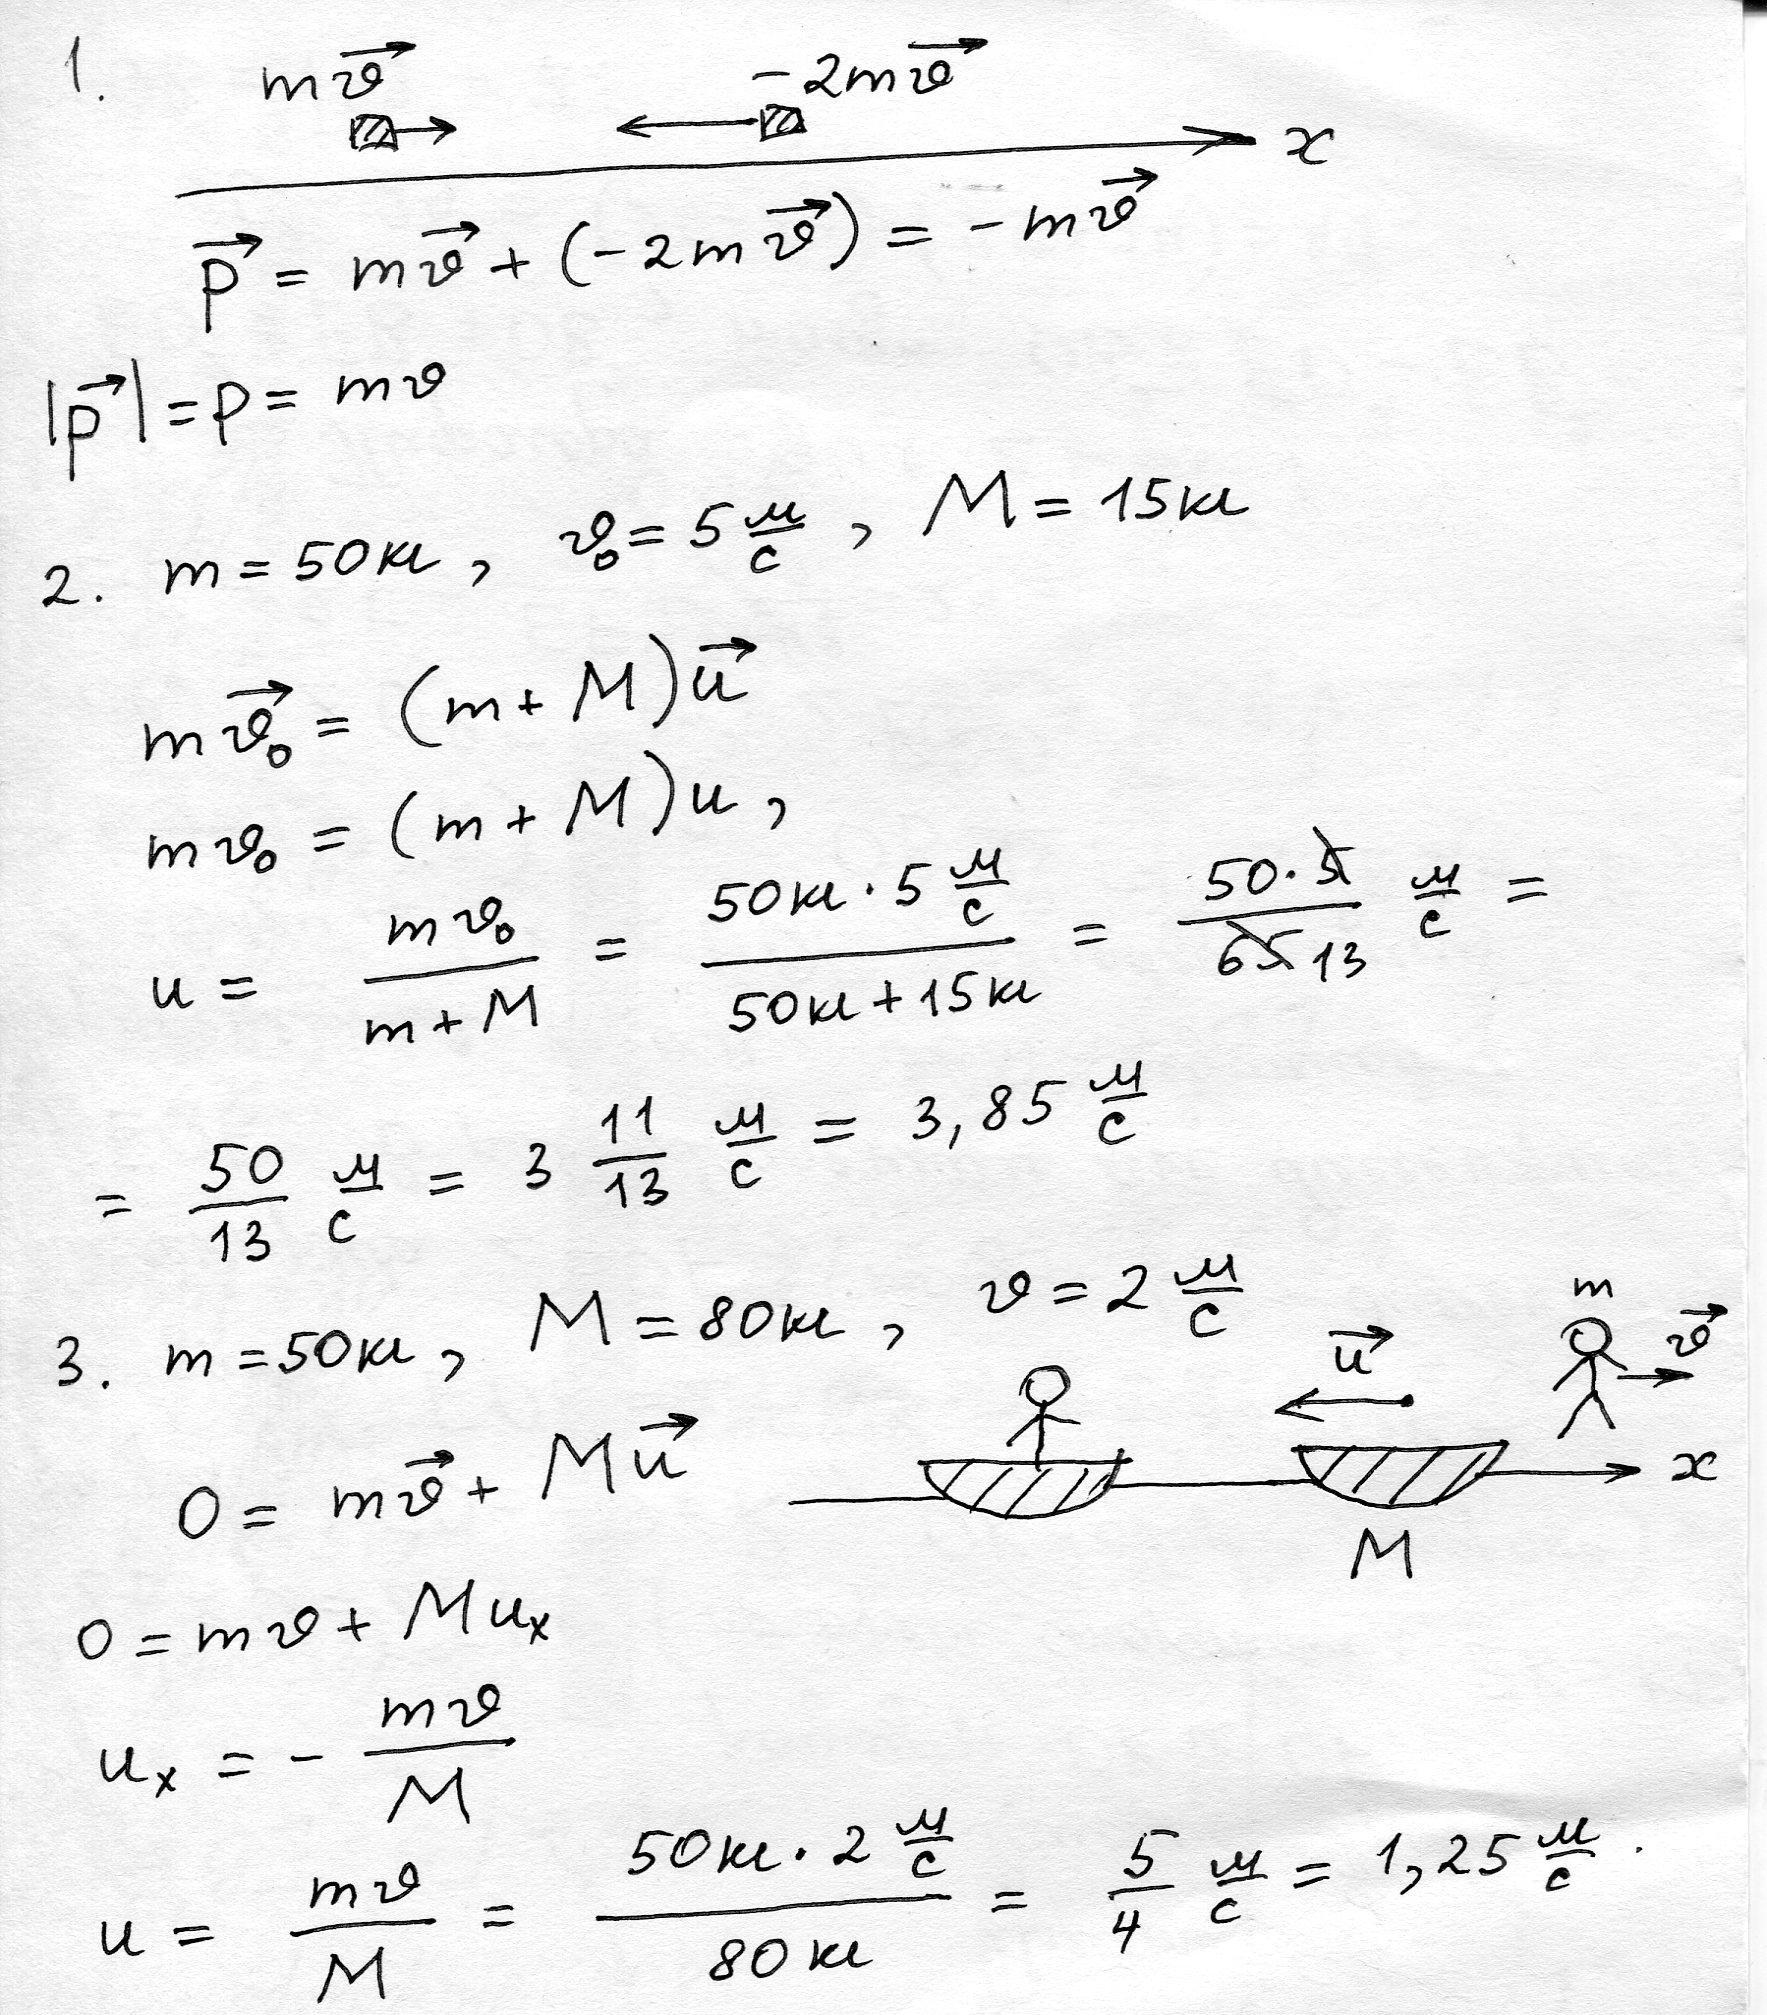 1. mv⃗ -2mv⃗
x
p⃗ = mv⃗ + (-2mv⃗) = -mv⃗
|p⃗| = p = mv
2. m = 50кг, v₀ = 5 м/с, M = 15кг
mv⃗₀ = (m + M)u⃗
mv₀ = (m + M)u,
u = mv₀/(m + M) = (50кг · 5 м/с)/(50кг + 15кг) = (50 · 5)/(65 13) м/с =
= 50/13 м/с = 3 11/13 м/с = 3,85 м/с
3. m = 50кг, M = 80кг, v = 2 м/с
m
u⃗ v⃗
x
M
0 = mv⃗ + Mu⃗
0 = mv + Muₓ
uₓ = - mv/M
u = mv/M = (50кг · 2 м/с)/(80кг) = 5/4 м/с = 1,25 м/с.